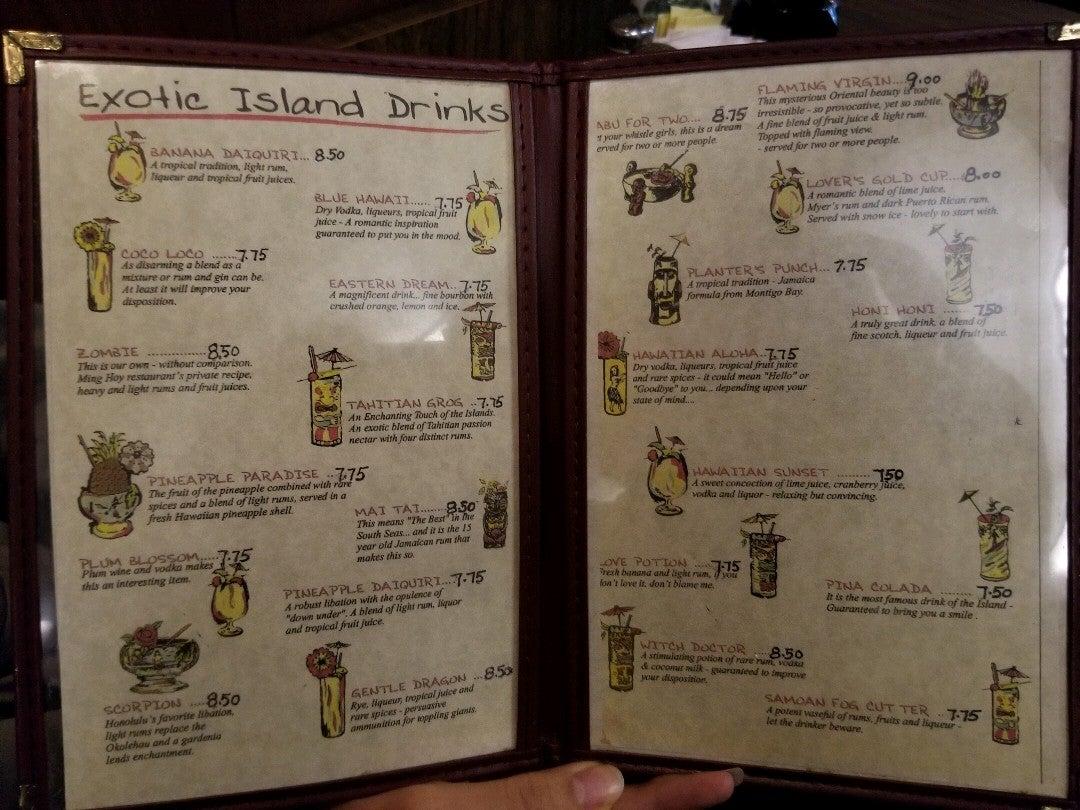 Exotic Island Drinks
BANANA DAIQUIRI... 8.50
A tropical tradition, light rum,
liqueur and tropical fruit juices.
BLUE HAWAII...... 7.75
Dry Vodka, liqueurs, tropical fruit
juice - A romantic inspiration
guaranteed to put you in the mood.
COCO LOCO .......7.75
As disarming a blend as a
mixture or rum and gin can be.
At least it will improve your
disposition.
EASTERN DREAM...7.75
A magnificent drink... fine bourbon with
crushed orange, lemon and ice.
ZOMBIE ..............8.50
This is our own - without comparison.
Ming Hoy restaurant's private recipe,
heavy and light rums and fruit juices.
TAHITIAN GROG ..7.75
An Enchanting Touch of the Islands.
An exotic blend of Tahitian passion
nectar with four distinct rums.
PINEAPPLE PARADISE ..7.75
The fruit of the pineapple combined with rare
spices and a blend of light rums, served in a
fresh Hawaiian pineapple shell.
MAI TAI.......8.50
This means "The Best" in the
South Seas... and it is the 15
year old Jamaican rum that
makes this so.
PLUM BLOSSOM.....7.75
Plum wine and vodka makes
this an interesting item.
PINEAPPLE DAIQUIRI...7.75
A robust libation with the opulence of
"down under". A blend of light rum, liquor
and tropical fruit juice.
SCORPION ....8.50
Honolulu's favorite libation,
light rums replace the
Okolehau and a gardenia
lends enchantment.
GENTLE DRAGON ...8.50
Rye, liqueur, tropical juice and
rare spices - persuasive
ammunition for toppling giants.
ABU FOR TWO.... 8.75
t your whistle girls, this is a dream
erved for two or more people.
FLAMING VIRGIN....9.00
This mysterious Oriental beauty is too
irresistible - so provocative, yet so subtle.
A fine blend of fruit juice & light rum.
Topped with flaming view.
- served for two or more people.
LOVER'S GOLD CUP....8.00
A romantic blend of lime juice,
Myer's rum and dark Puerto Rican rum.
Served with snow ice - lovely to start with.
PLANTER'S PUNCH... 7.75
A tropical tradition - Jamaica
formula from Montigo Bay.
HONI HONI ........7.50
A truly great drink, a blend of
fine scotch, liqueur and fruit juice.
HAWAIIAN ALOHA..7.75
Dry vodka, liqueurs, tropical fruit juice
and rare spices - it could mean "Hello" or
"Goodbye" to you... depending upon your
state of mind....
HAWAIIAN SUNSET ..........7.50
A sweet concoction of lime juice, cranberry juice,
vodka and liquor - relaxing but convincing.
OVE POTION .....7.75
resh banana and light rum, if you
on't love it. don't blame me.
PINA COLADA .........7.50
It is the most famous drink of the Island -
Guaranteed to bring you a smile .
WITCH DOCTOR ....8.50
A stimulating potion of rare rum, vodka
& coconut milk - guaranteed to improve
your disposition.
SAMOAN FOG CUTTER ..7.75
A potent vaseful of rums, fruits and liqueur -
let the drinker beware.